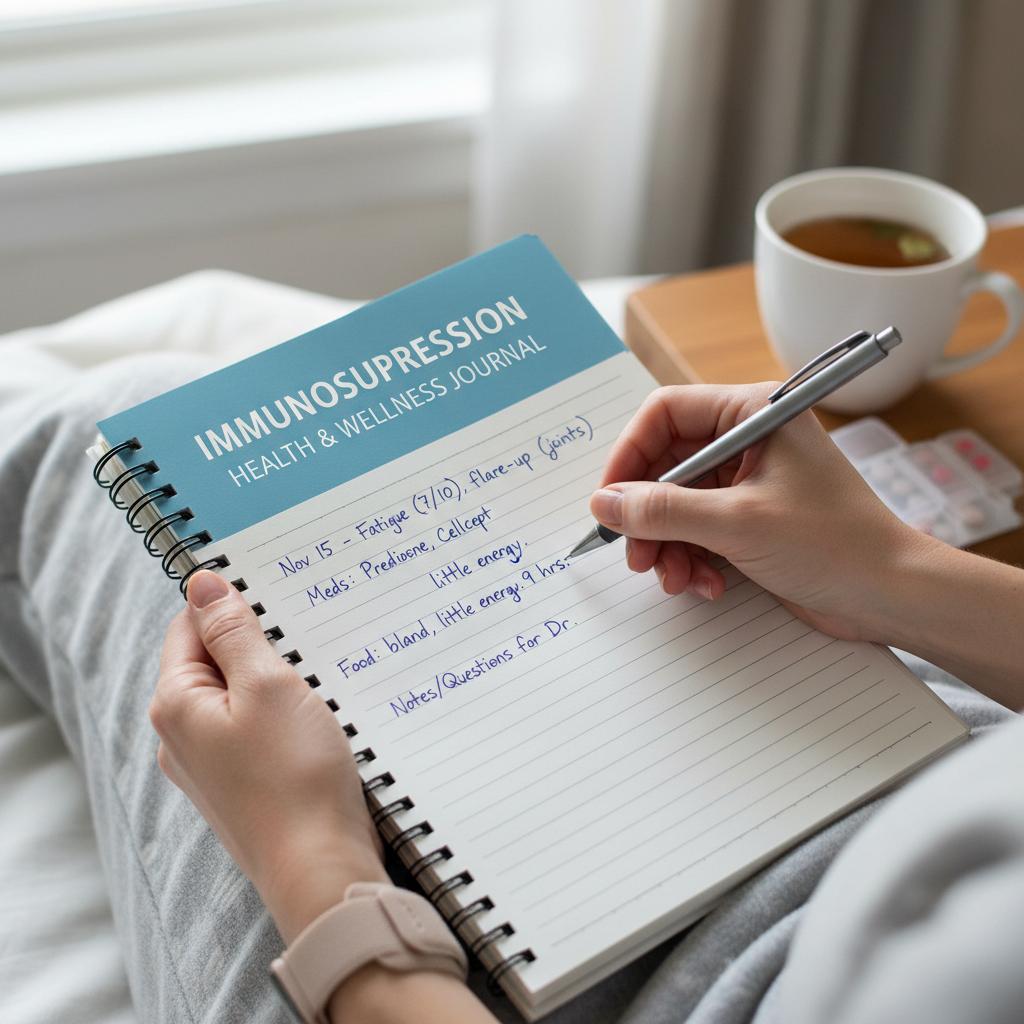 IMMUNOSUPRESSION
HEALTH & WELLNESS JOURNAL
Nov 15 - Fatigue (7/10), flare-up (joints)
Meds: Predisone, Cellcept
little energy.
Food: bland, little energy. 9 hrs.
Notes/Questions for Dr.